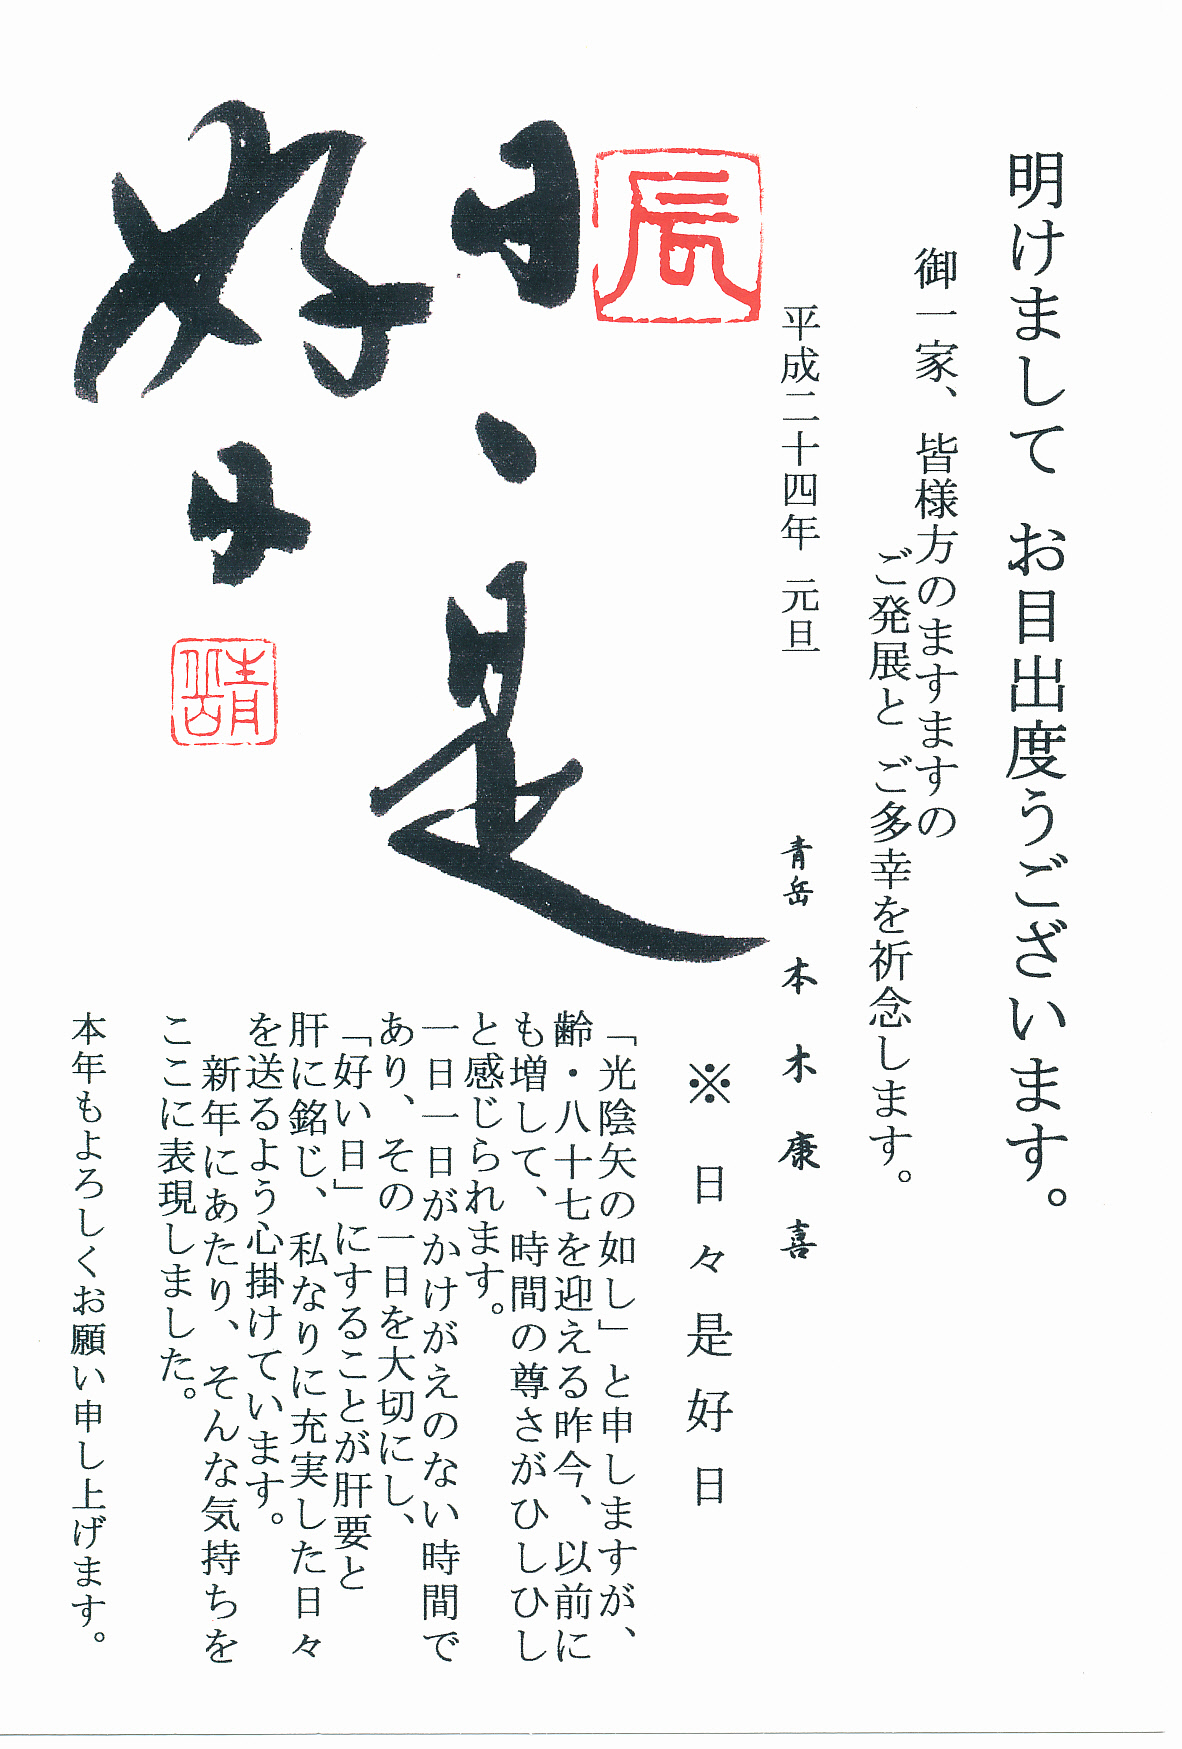 明けまして お目出度うございます。
御一家、皆様方のますますの
ご発展と ご多幸を祈念します。
平成二十四年 元旦
青岳 本木康喜
辰
日々是
好日
青岳
※ 日々是好日
「光陰矢の如し」と申しますが、
齢・八十七を迎える昨今、以前に
も増して、時間の尊さがひしひし
と感じられます。
一日一日がかけがえのない時間で
あり、その一日を大切にし、
「好い日」にすることが肝要と
肝に銘じ、私なりに充実した日々
を送るよう心掛けています。
新年にあたり、そんな気持ちを
ここに表現しました。
本年もよろしくお願い申し上げます。